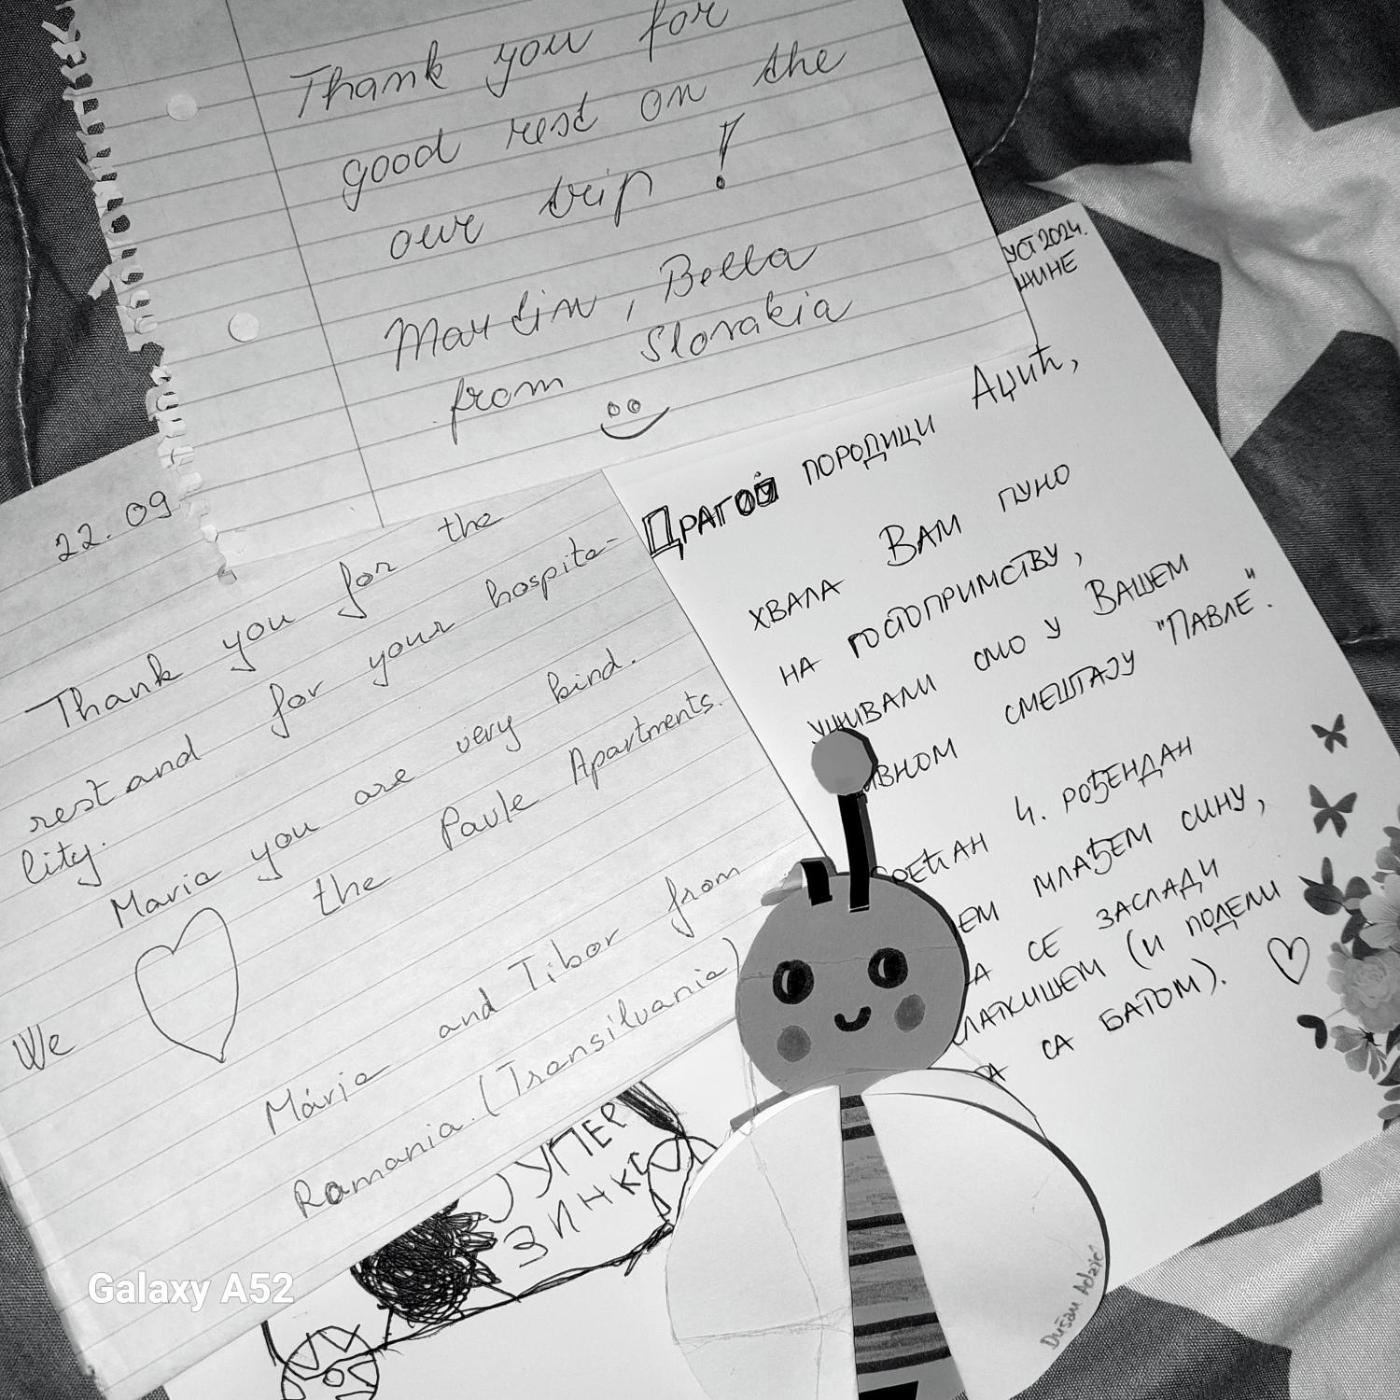 Thank you for
good rest on the
our trip!
Martin, Bella
from Slovakia
22.09
Thank you for the
rest and for your hospita-
lity.
Maria you are very kind.
We the Pavle Apartments.
Mária and Tibor from
Romania. (Transilvania)
УСТ 2024.
ШИНЕ
Драгој породици Аџић,
хвала Вам пуно
на гостопримству,
уживали смо у Вашем
ивном смештају "Павле".
рећан 4. рођендан
ем млађем сину,
а се заслади
латкишем (и подели
га са батом).
СУПЕР
ЗИНКС
Dušan Adžić
Galaxy A52